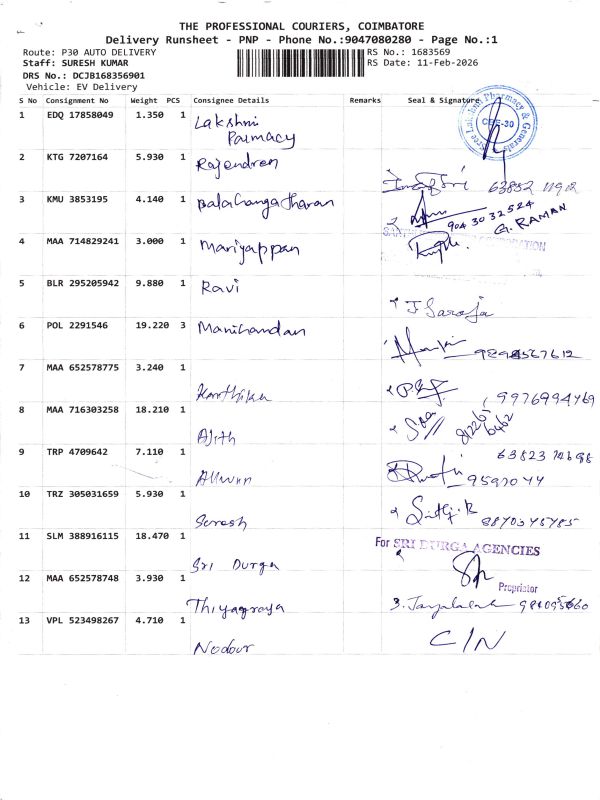 THE PROFESSIONAL COURIERS, COIMBATORE
Delivery Runsheet - PNP - Phone No.:9047080280 - Page No.:1
Route: P30 AUTO DELIVERY RS No.: 1683569
Staff: SURESH KUMAR RS Date: 11-Feb-2026
DRS No.: DCJB168356901
Vehicle: EV Delivery
S No Consignment No Weight PCS Consignee Details Remarks Seal & Signature
1 EDQ 17858049 1.350 1 Lakshmi
Parmacy
Pharmacy & Generals
CBE-30
2 KTG 7207164 5.930 1 Rajendren
3 KMU 3853195 4.140 1 Balachangatharan
9043032524
G. RAMAN
4 MAA 714829241 3.000 1 Mariyappan
5 BLR 295205942 9.880 1 Ravi
J Saroja
6 POL 2291546 19.220 3 Manikandan
7 MAA 652578775 3.240 1 Karthika
9976994769
8 MAA 716303258 18.210 1 Ajith
9 TRP 4709642 7.110 1 Alluvin
10 TRZ 305031659 5.930 1 Suresh
11 SLM 388916115 18.470 1 Sri Durga
For SRI DURGA AGENCIES
Proprietor
12 MAA 652578748 3.930 1 Thiyagraya
13 VPL 523498267 4.710 1 Nodour
C/N